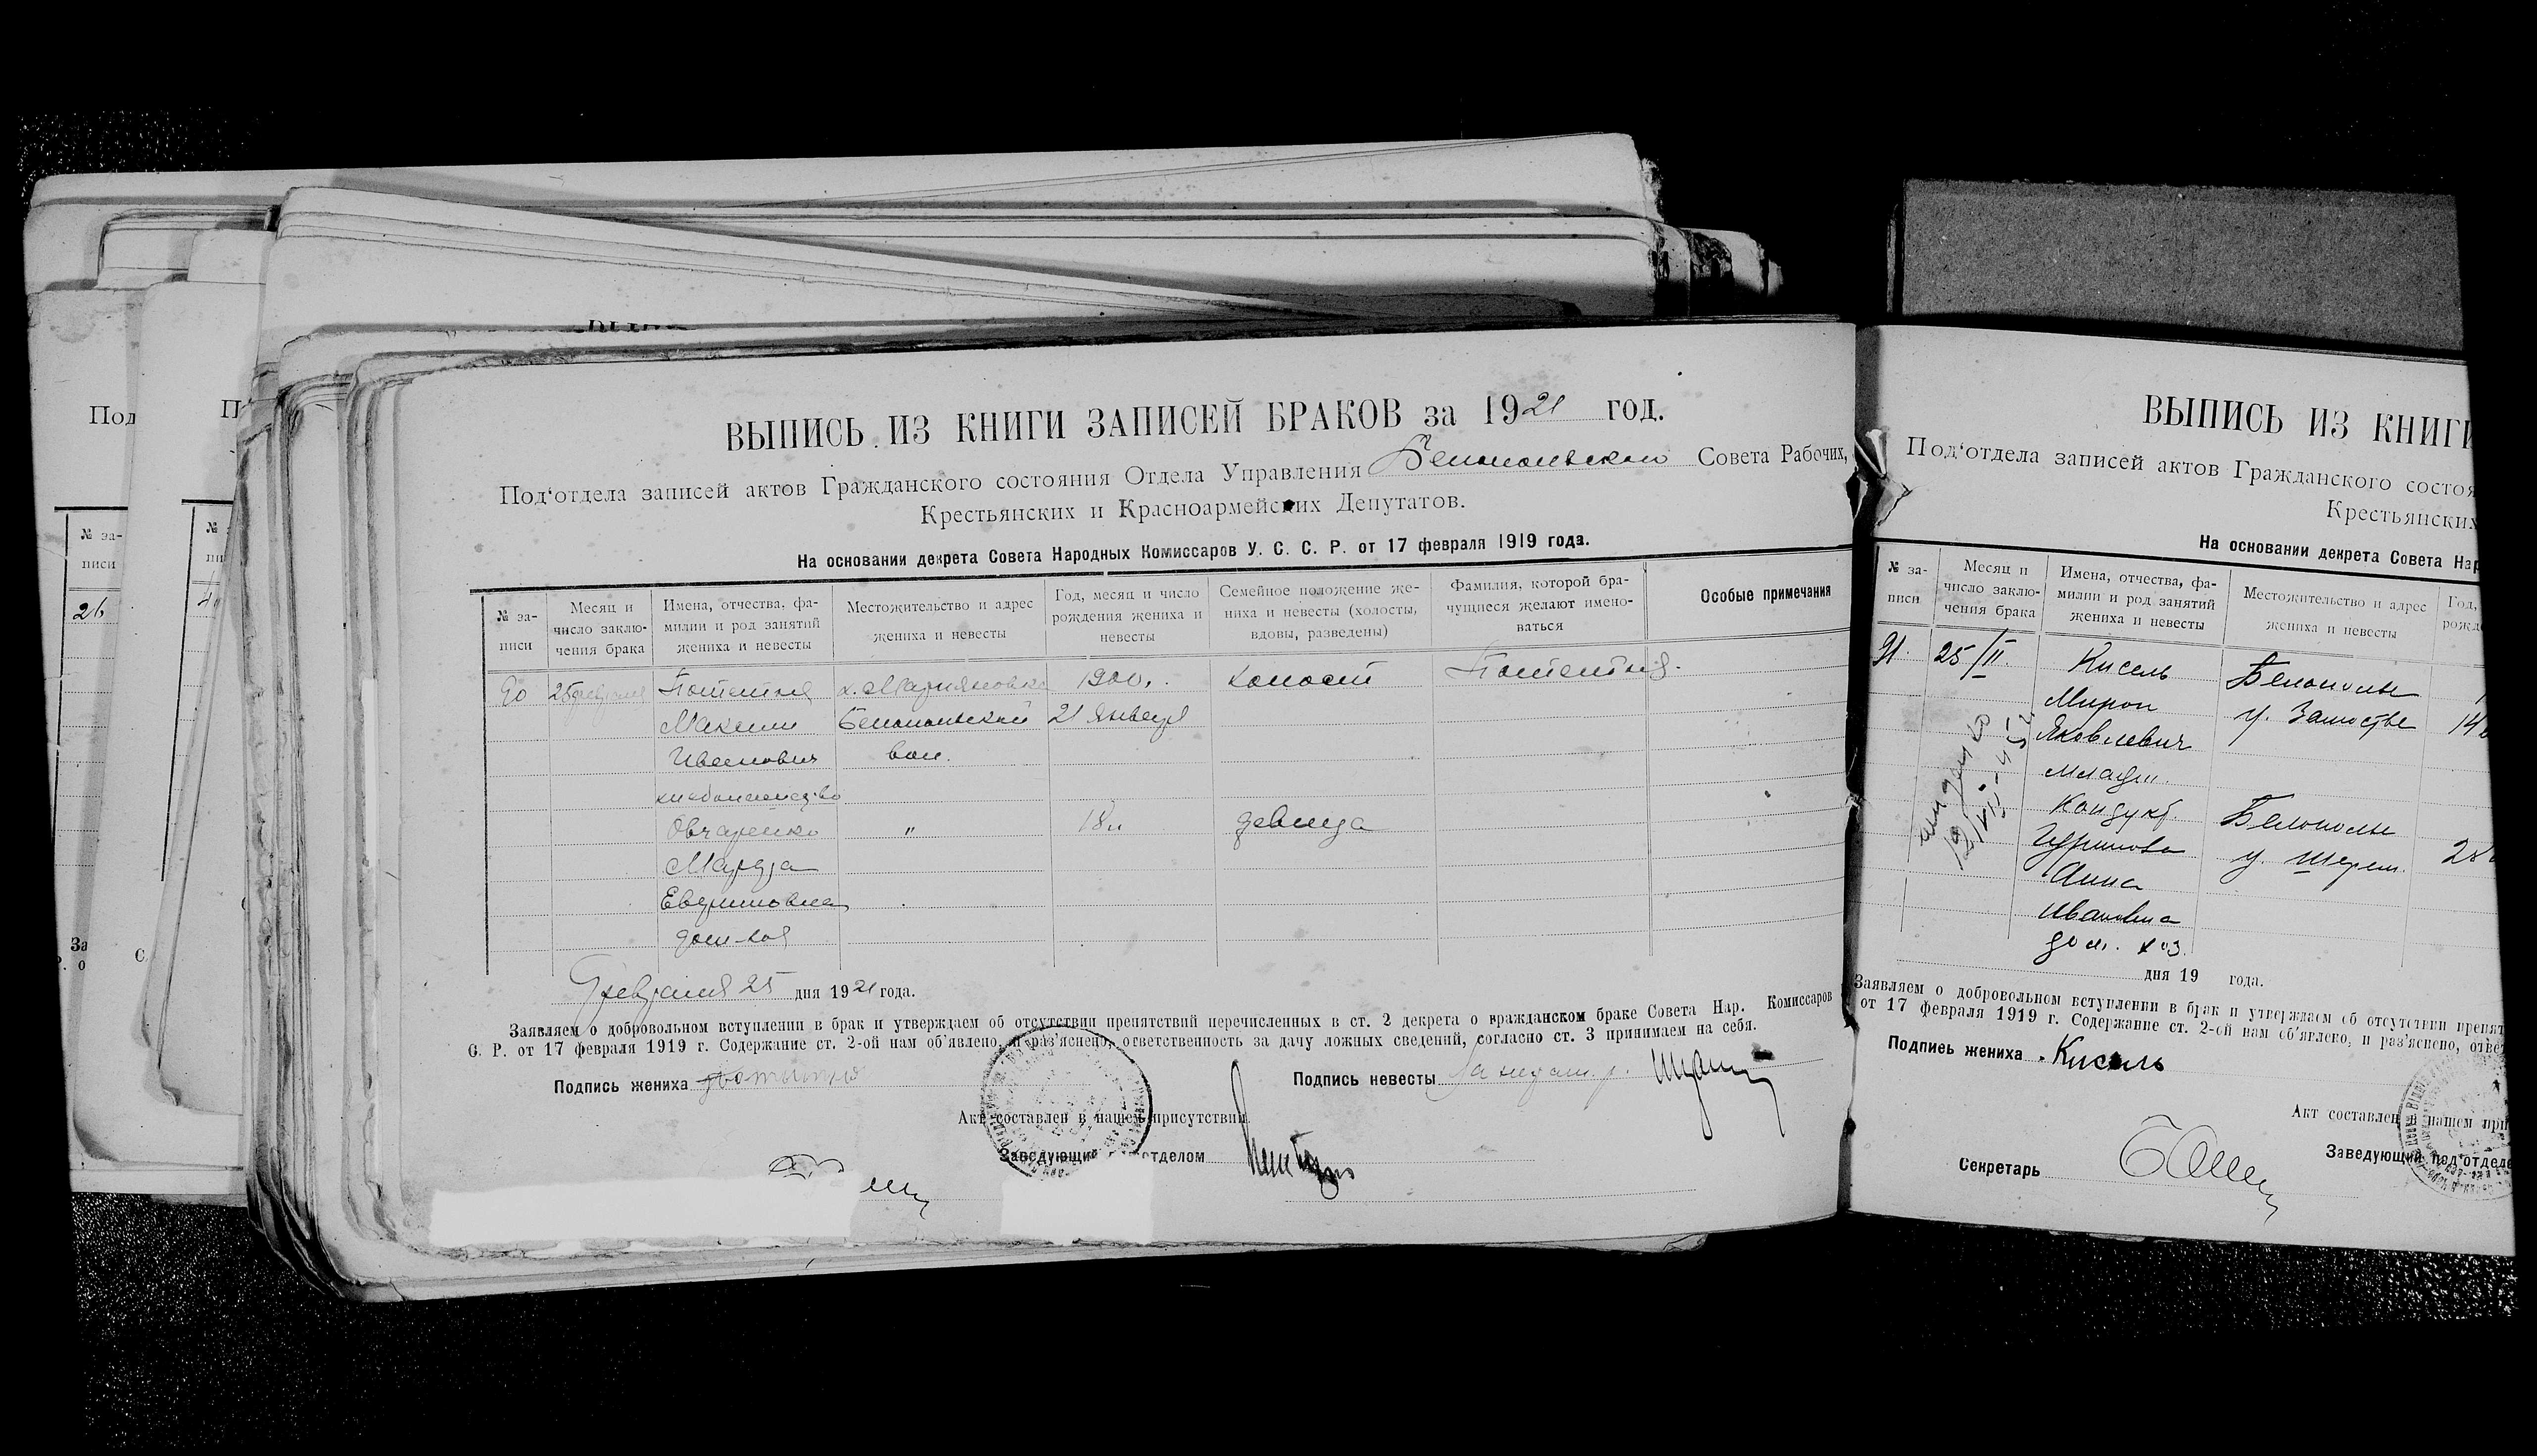 Под
П
№ за-
писи
26
За
ВЫПИСЬ ИЗ КНИГИ ЗАПИСЕЙ БРАКОВ за 1921 год.
Под‘отдела записей актов Гражданского состояния Отдела Управления Белопольского Совета Рабочих,
Крестьянских и Красноармейских Депутатов.
На основании декрета Совета Народных Комиссаров У. С. С. Р. от 17 февраля 1919 года.
№ за-
писи
Месяц и
число заклю-
чения брака
Имена, отчества, фа-
милии и род занятий
жениха и невесты
Местожительство и адрес
жениха и невесты
Год, месяц и число
рождения жениха и
невесты
Семейное положение же-
ниха и невесты (холосты,
вдовы, разведены)
Фамилия, которой бра-
чущиеся желают имено-
ваться
Особые примечания
90 25 февраля Потетня х. Марьяновка 1900 г. холост Потетня
Максим Белопольской 21 января
Иванович вол.
хлебопашество
Овчаренко " 18 л девица
Марфа
Евдокимовна
дом-хоз
Февраля 25 дня 1921 года.
Заявляем о добровольном вступлении в брак и утверждаем об отсутствии препятствий перечисленных в ст. 2 декрета о гражданском браке Совета Нар. Комиссаров
С. Р. от 17 февраля 1919 г. Содержание ст. 2-ой нам об‘явлено, и раз‘яснено, ответственность за дачу ложных сведений, согласно ст. 3 принимаем на себя.
Подпись жениха
Подпись невесты За неграм. р.
Акт составлен в нашем присутствии.
Заведующий отделом
ВЫПИСЬ ИЗ КНИГИ
Под‘отдела записей актов Гражданского состоя
Крестьянских
На основании декрета Совета Нар
№ за-
писи
Месяц и
число заклю-
чения брака
Имена, отчества, фа-
милии и род занятий
жениха и невесты
Местожительство и адрес
жениха и невесты
Год,
рожде
91. 25/II. Кисель Белополье
Мирон у. Замостье 14
Яковлевич
младш.
Кондукт. Белополье
Гуринова у.
Анна
Ивановна
дом. хоз.
дня 19 года.
Заявляем о добровольном вступлении в брак и утверждаем об отсутствии препят
от 17 февраля 1919 г. Содержание ст. 2-ой нам об‘явлено, и раз‘яснено, ответ
Подпись жениха Кисель
Акт составлен в нашем при
Заведующий под‘отделе
Секретарь